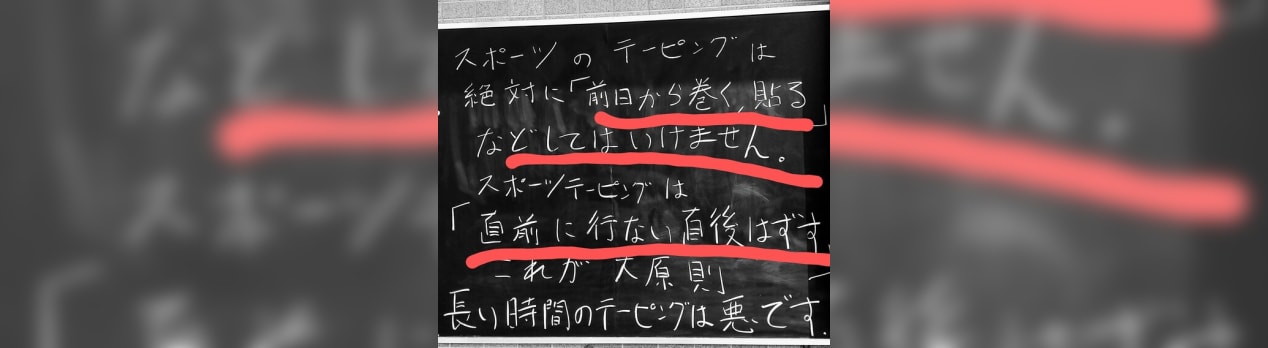 スポーツの テーピングは
絶対に「前日から巻く、貼る」
などしてはいけません。
スポーツテーピングは
「直前に行ない直後はずす
これが 大原則」
長い時間のテーピングは悪いです.